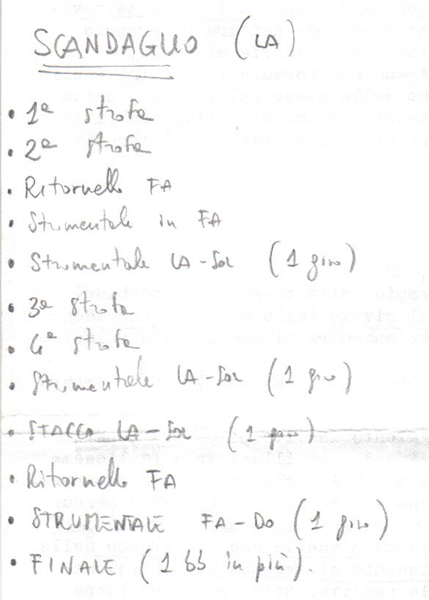 SCANDAGLIO (LA)
• 1ª strofa
• 2ª strofa
• Ritornello FA
• Strumentale in FA
• Strumentale LA-Sol (1 giro)
• 3ª strofa
• 4ª strofa
• Strumentale LA-Sol (1 giro)
• STACCO LA-Sol (1 giro)
• Ritornello FA
• STRUMENTALE FA-DO (1 giro)
• FINALE (1 bb in più).